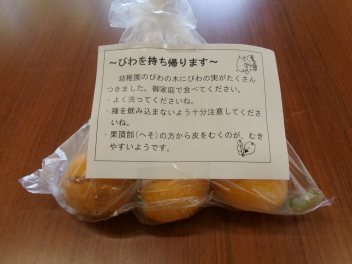 ～びわを持ち帰ります～
幼稚園のびわの木にびわの実がたくさん
つきました。御家庭で食べてください。
・よく洗ってくださいね。
・種を飲み込まないよう十分注意してくださ
いね。
・果頂部(へそ)の方から皮をむくのが、むき
やすいようです。